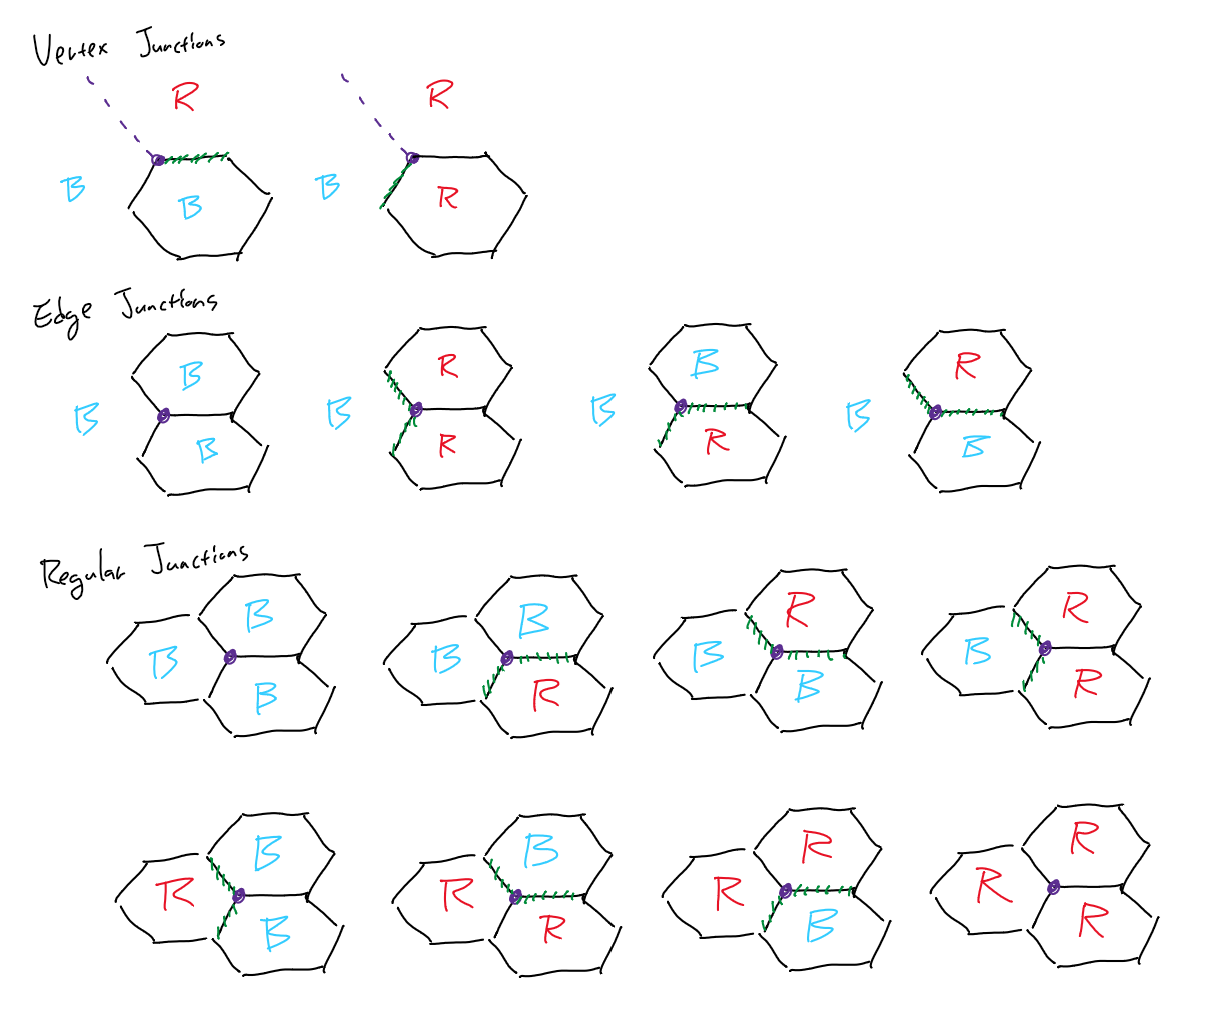 Vertex Junctions
R R
B B B R
Edge Junctions
B R B R
B B B B
B R R B
Regular Junctions
B B R R
B B B B
B R B R
B B R R
R R R R
B R B R